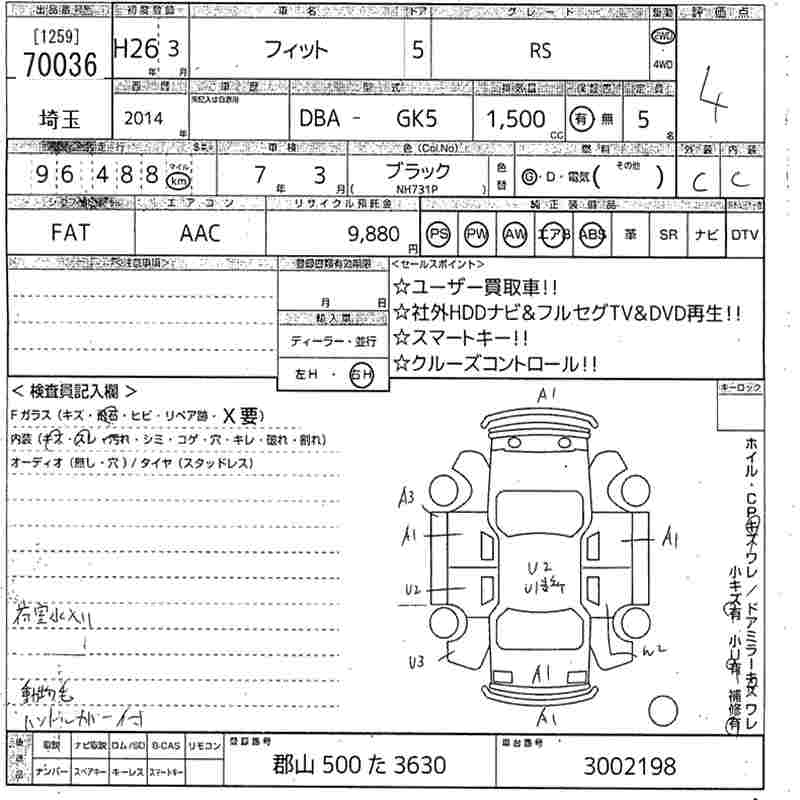 出品番号 初度登録 車名 ドア グレード 駆動 評価点
[1259]
70036 H26年 3月 フィット 5 RS 2WD 4WD 4
西暦 車歴 型式 排気量 保証書 定員
埼玉 2014年 DBA - GK5 1,500cc 有 無 5名
走行 車検 色(Col.No) 燃料 外装 内装
96,488 マイル km 7年 3月 ブラック (NH731P) 色替 G・D・電気(その他) C C
シフト エアコン リサイクル預託金 純正装備品
FAT AAC 9,880円 PS PW AW エアB ABS 革 SR ナビ DTV
<注意事項> 登録書類有効期限 <セールスポイント>
月 日
☆ユーザー買取車!!
☆社外HDDナビ&フルセグTV&DVD再生!!
☆スマートキー!!
☆クルーズコントロール!!
輸入車
ディーラー・並行
左H・右H
<検査員記入欄>
キーロック
Fガラス(キズ・飛石・ヒビ・リペア跡・X要)
内装(キズ・スレ・汚れ・シミ・コゲ・穴・キレ・破れ・割れ)
オーディオ(無し・穴)/タイヤ(スタッドレス)
A1
A3
A1 A1
U2
U2 U1
U3
A1
A1
荷室水入り
動物毛
ハンドルカバー付
ホイル・CPキズワレ/ドアミラーキズワレ
小キズ有 小U有 補修有
後送品 取説 ナビ取説 ロム/SD B-CAS リモコン
ナンバー スペアキー キーレス スマートキー
登録番号 車台番号
郡山 500 た 3630 3002198